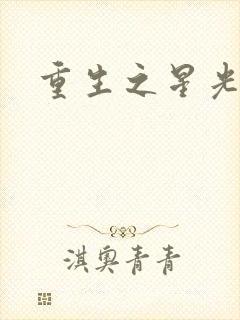 重生之星光
淇奥青青